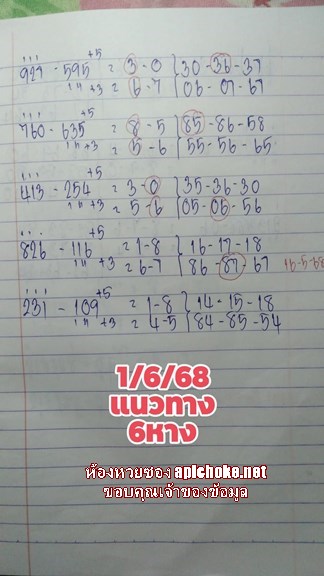 +5
927 - 595 = 3 - 0 } 30 - 36 - 37
+3 = 6 - 7 } 06 - 07 - 67
+5
760 - 635 = 8 - 5 } 85 - 86 - 58
+3 = 5 - 6 } 55 - 56 - 65
+5
413 - 254 = 3 - 0 } 35 - 36 - 30
+3 = 5 - 6 } 05 - 06 - 56
+5
826 - 116 = 1 - 8 } 16 - 17 - 18
+3 = 6 - 7 } 86 - 87 - 67
+5
231 - 109 = 1 - 8 } 14 - 15 - 18
+3 = 4 - 5 } 84 - 85 - 54
1/6/68
แนวทาง
6หาง
ห้องหวยซอง apichoke.net
ขอบคุณเจ้าของข้อมูล